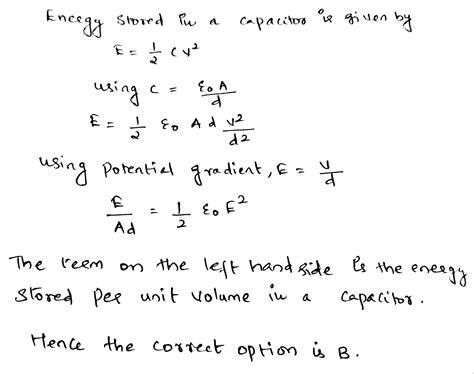 Energy stored in a capacitor is given by
E = 1/2 CV²
using C = ε₀A/d
E = 1/2 ε₀ A d V²/d²
using potential gradient, E = V/d
E/Ad = 1/2 ε₀E²
The term on the left hand side is the energy
stored per unit volume in a capacitor.
Hence the correct option is B.